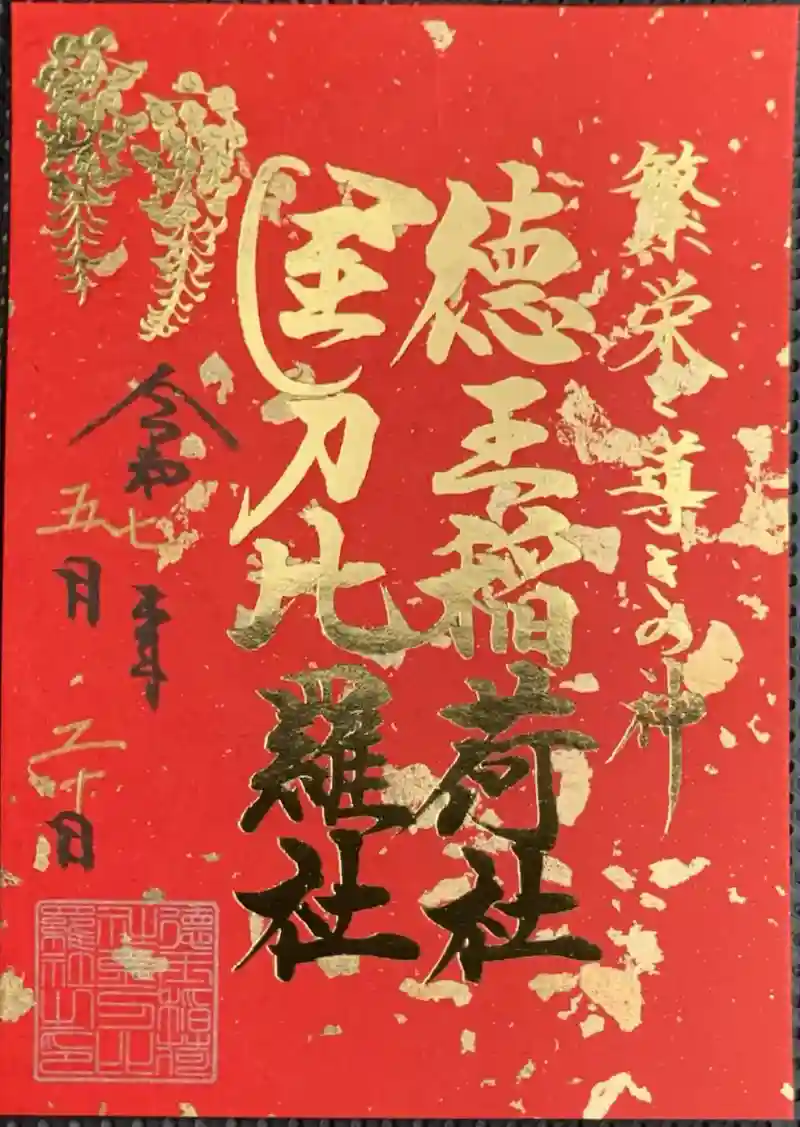 繁栄と導きの神
徳王稲荷社
金刀比羅社
令和七年
五月二十日
徳王稲荷
社金刀比
羅社之印